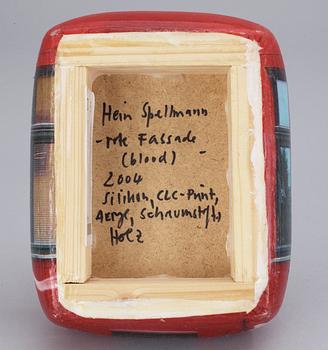 Hein Spellmann
- rote Fassade
(blood) -
2004
Silikon, CLC-Print,
Acryl, Schaumstoff,
Holz